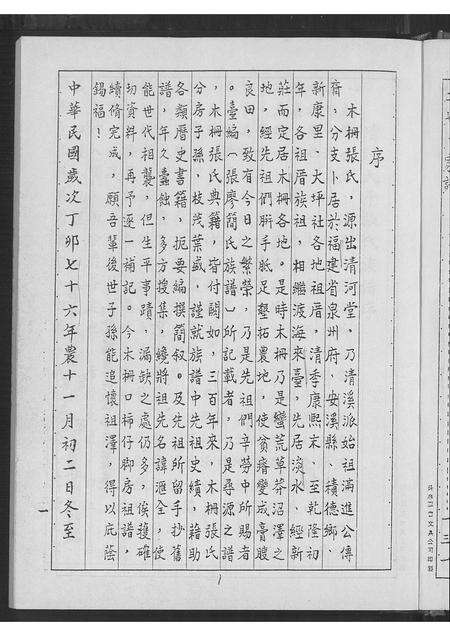 序
木柵張氏，源出清河堂，乃清溪派始祖滿進公傳
裔，分支卜居於福建省泉州府、安溪縣、積德鄉、
新康里、大坪社各地祖厝，清季康熙末、至乾隆初
年，各祖厝族祖，相繼渡海來臺，先居淡水、經新
莊而定居木柵各地。是時木柵乃是蠻荒草莽沼澤之
地，經先祖們胼手胝足墾拓農地，使貧瘠變成膏腴
良田，致有今日之繁榮，乃是先祖們辛勞中所賜者
。臺編（張廖簡氏族譜）所記載者，乃是尋源之譜
，木柵張氏典籍，皆付闕如，三百年來，木柵張氏
分房子孫，枝茂葉盛，謹就族譜中先祖史績，藉助
各類曆史書籍，扼要編撰簡叙。及先祖所留手抄舊
譜，年久蠹蝕，多方搜集，纔將祖先名諱滙全，使
能世代相襲，但生平事蹟，漏缺之處仍多，俟獲確
切資料，再予逐一補記。今木柵口柿仔脚房祖譜，
續脩完成，願吾輩後世子孫能追懷祖澤，得以庇蔭
錫福！
中華民國歲次丁卯七十六年農十一月初二日冬至
一
1